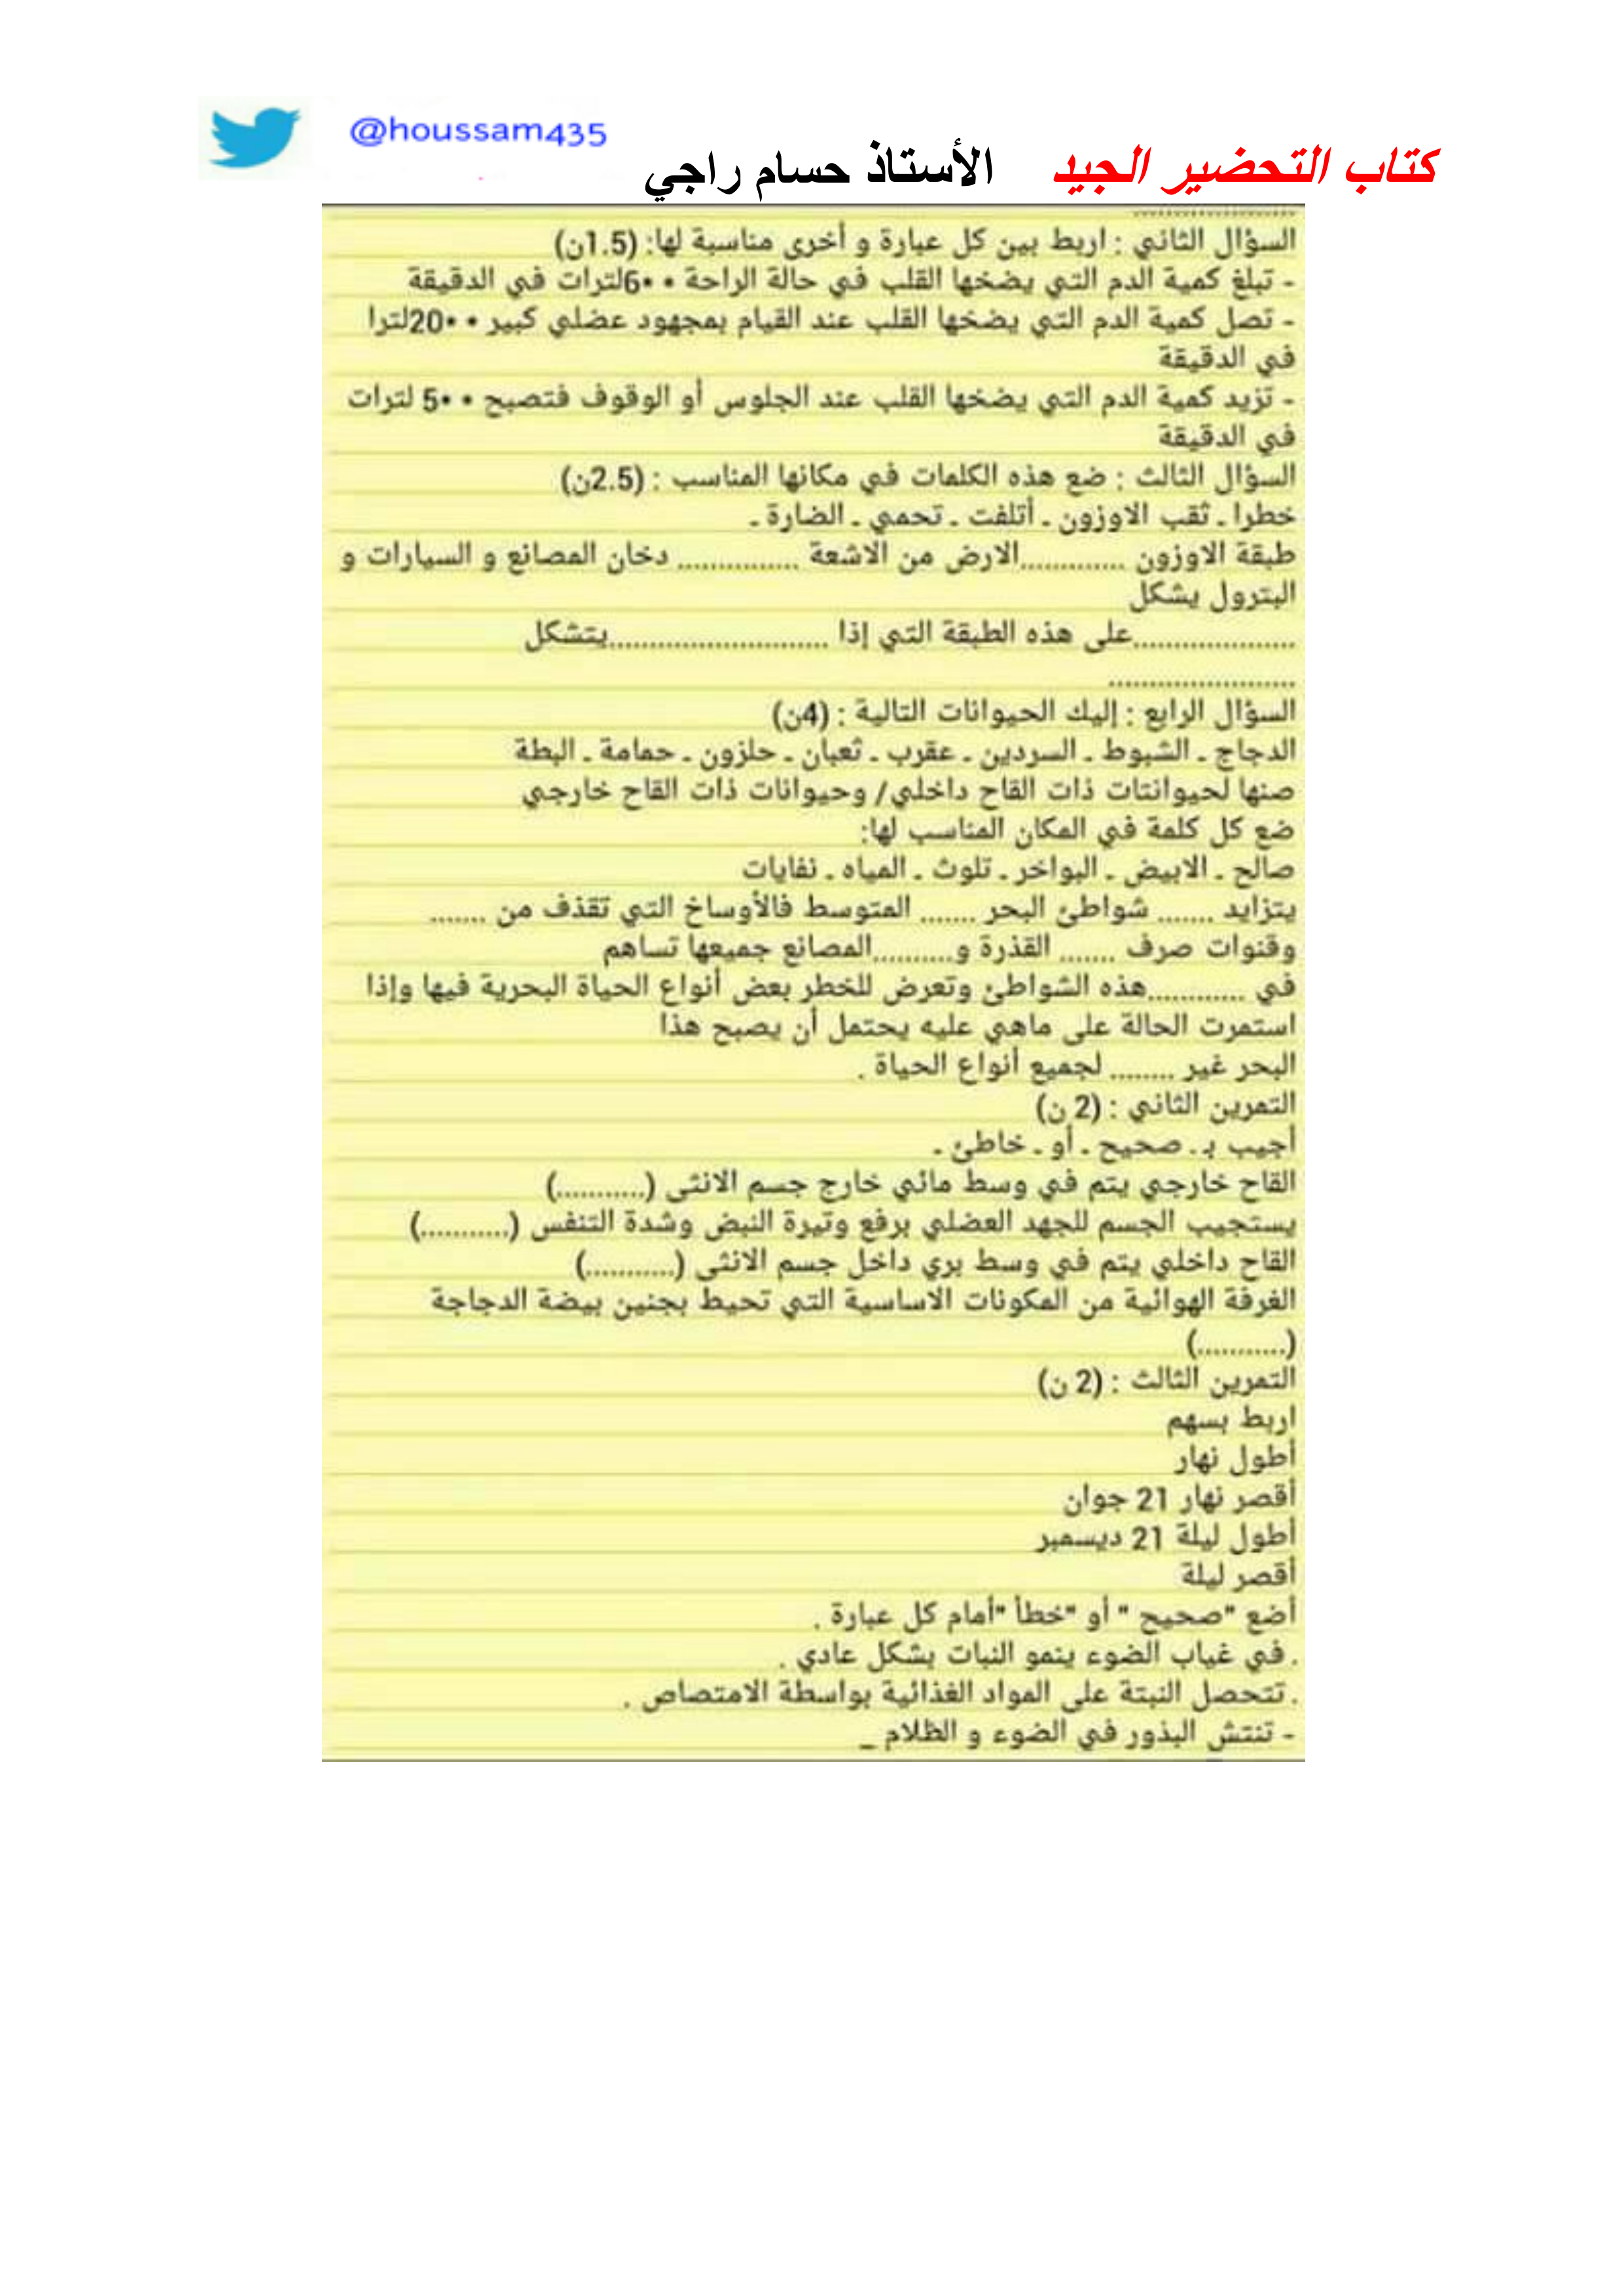 @houssam435
كتاب التحضير الجيد الأستاذ حسام راجي
....................
السؤال الثاني : اربط بين كل عبارة و أخرى مناسبة لها: (1.5ن)
- تبلغ كمية الدم التي يضخها القلب في حالة الراحة • •6لترات في الدقيقة
- تصل كمية الدم التي يضخها القلب عند القيام بمجهود عضلي كبير • •20لترا
في الدقيقة
- تزيد كمية الدم التي يضخها القلب عند الجلوس أو الوقوف فتصبح • •5 لترات
في الدقيقة
السؤال الثالث : ضع هذه الكلمات في مكانها المناسب : (2.5ن)
خطرا ـ ثقب الاوزون ـ أتلفت ـ تحمي ـ الضارة ـ
طبقة الاوزون .............الارض من الاشعة ............... دخان المصانع و السيارات و
البترول يشكل
....................على هذه الطبقة التي إذا ...........................يتشكل
.......................
السؤال الرابع : إليك الحيوانات التالية : (4ن)
الدجاج ـ الشبوط ـ السردين ـ عقرب ـ ثعبان ـ حلزون ـ حمامة ـ البطة
صنها لحيوانتات ذات القاح داخلي/ وحيوانات ذات القاح خارجي
ضع كل كلمة في المكان المناسب لها:
صالح ـ الابيض ـ البواخر ـ تلوث ـ المياه ـ نفايات
يتزايد ....... شواطئ البحر ....... المتوسط فالأوساخ التي تقذف من .......
وقنوات صرف ....... القذرة و..........المصانع جميعها تساهم
في ............هذه الشواطئ وتعرض للخطر بعض أنواع الحياة البحرية فيها وإذا
استمرت الحالة على ماهي عليه يحتمل أن يصبح هذا
البحر غير ........ لجميع أنواع الحياة .
التمرين الثاني : (2 ن)
أجيب بـ ـ صحيح ـ أو ـ خاطئ ـ
القاح خارجي يتم في وسط مائي خارج جسم الانثى (...........)
يستجيب الجسم للجهد العضلي برفع وتيرة النبض وشدة التنفس (...........)
القاح داخلي يتم في وسط بري داخل جسم الانثى (...........)
الغرفة الهوائية من المكونات الاساسية التي تحيط بجنين بيضة الدجاجة
(...........)
التمرين الثالث : (2 ن)
اربط بسهم
أطول نهار
أقصر نهار 21 جوان
أطول ليلة 21 ديسمبر
أقصر ليلة
أضع "صحيح " أو "خطأ "أمام كل عبارة .
. في غياب الضوء ينمو النبات بشكل عادي .
. تتحصل النبتة على المواد الغذائية بواسطة الامتصاص .
- تنتش البذور في الضوء و الظلام _